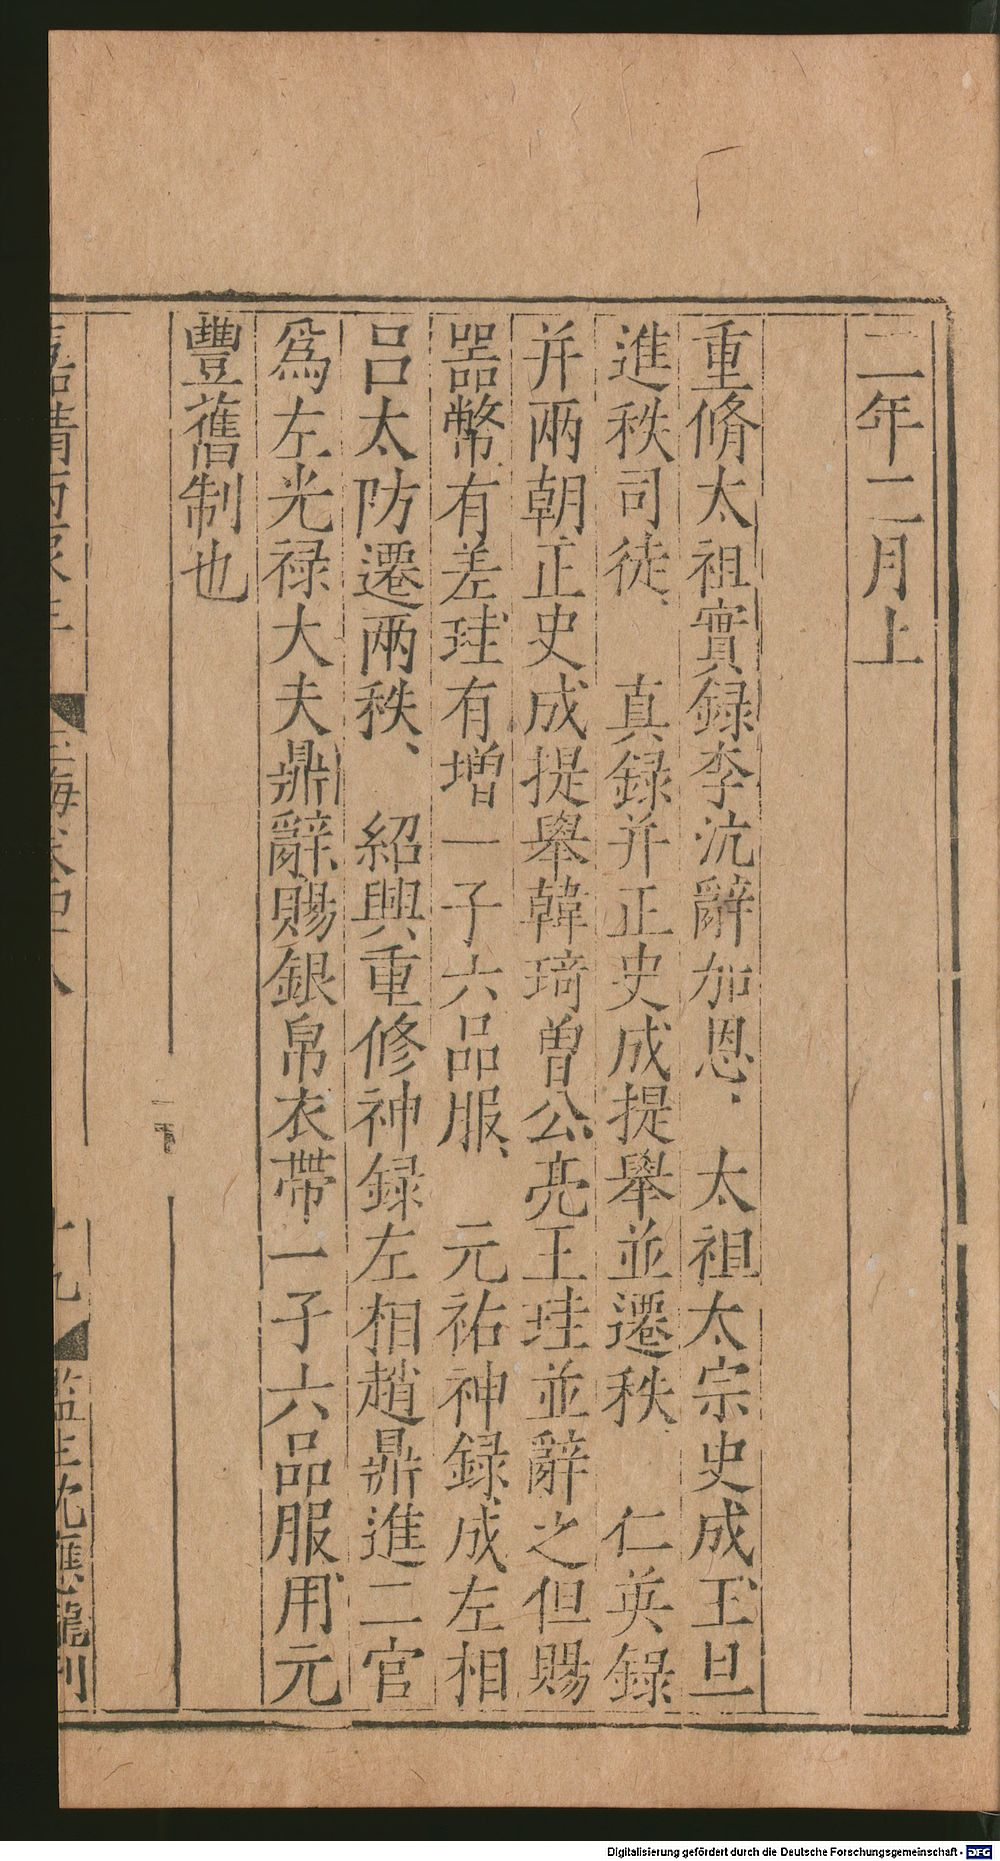 二年二月上
重脩太祖實録李沆辭加恩、太祖太宗史成王旦
進秩司徒、真録并正史成提舉並遷秩、仁英録
并兩朝正史成提舉韓琦曽公亮王珪並辭之但賜
器幣有差珪有增一子六品服、元祐神録成左相
吕太防遷兩秩、紹興重修神録左相趙鼎進二官
爲左光禄大夫鼎辭賜銀帛衣帶一子六品服用元
豐舊制也
玉海卷四十八 十九 監生沈應龍刊
Digitalisierung gefördert durch die Deutsche Forschungsgemeinschaft - DFG